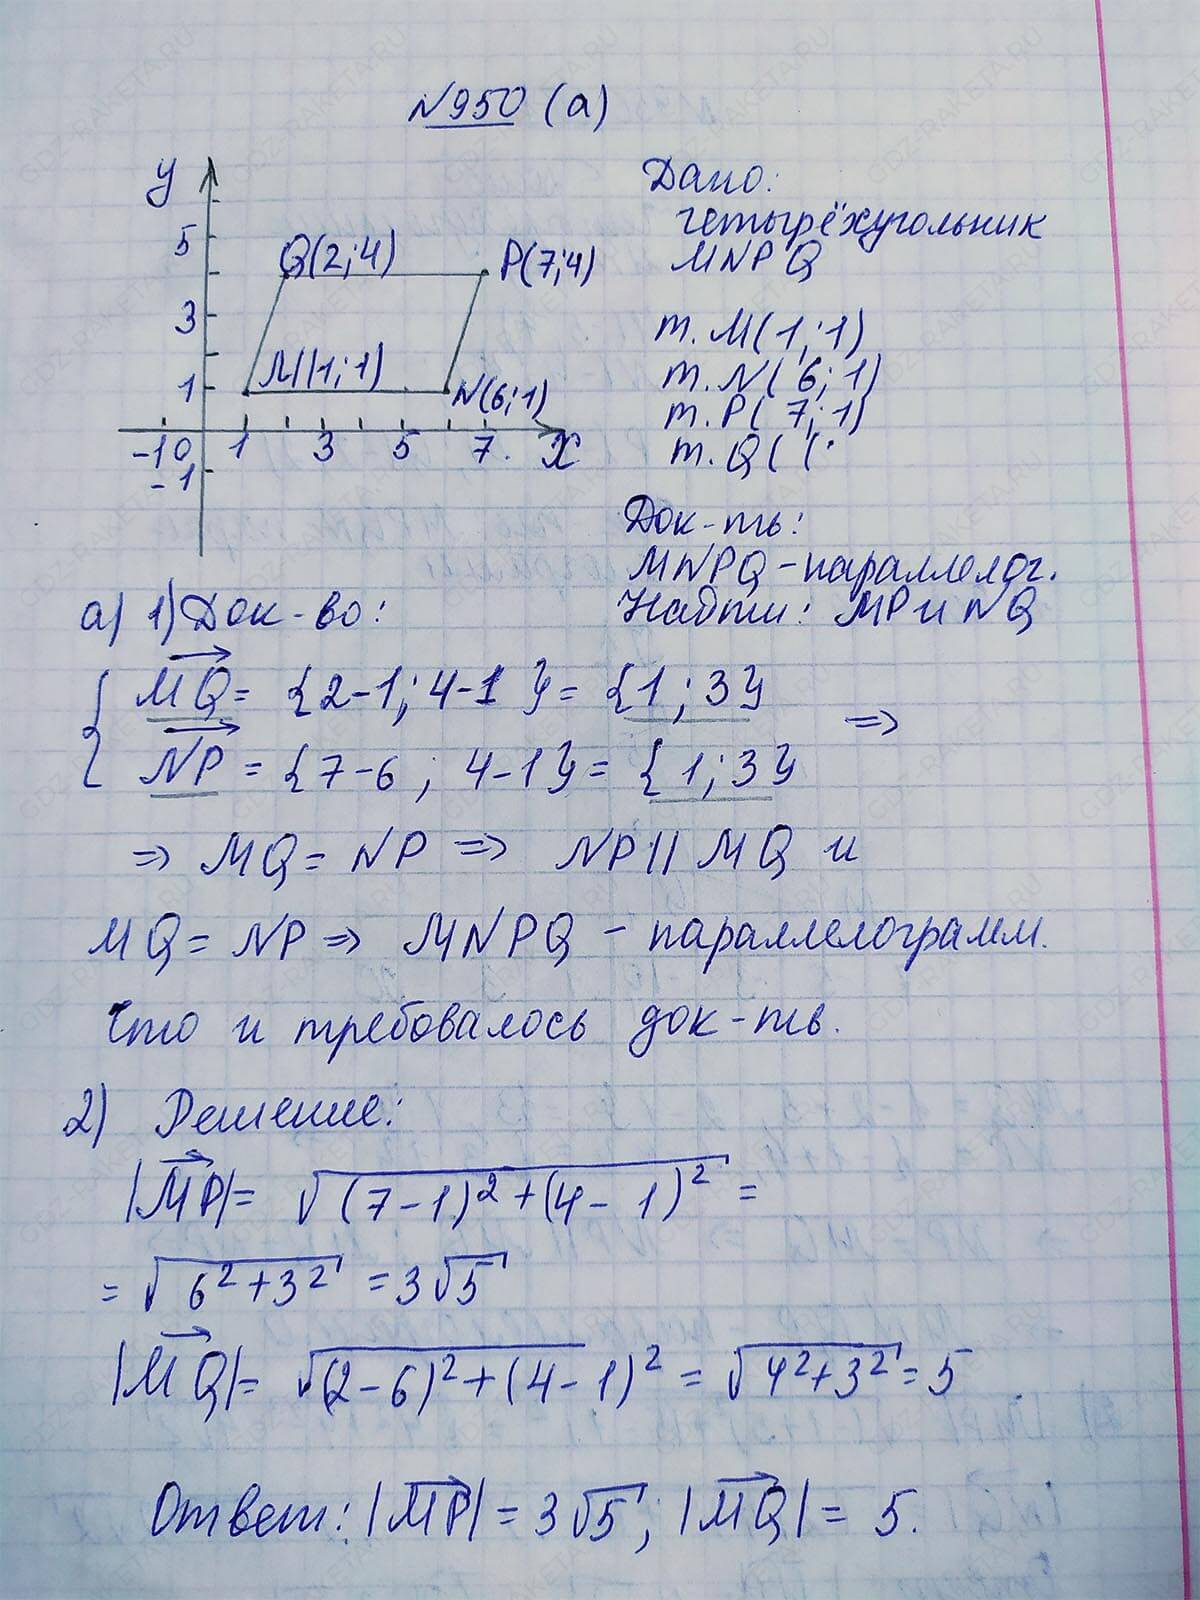 N950 (а)
y
5
3
1
-1 0 1 3 5 7. x
-1
Q(2;4)
P(7;4)
M(1;1)
N(6;1)
Дано:
четырёхугольник
MNPQ
т. M(1;1)
т. N(6;1)
т. P(7;1)
т. Q(
Док-ть:
MNPQ - параллелог.
Найти: MP и NQ
а) 1) Док-во:
MQ = {2-1; 4-1} = {1; 3}
NP = {7-6; 4-1} = {1; 3} =>
=> MQ = NP => NP || MQ и
MQ = NP => MNPQ - параллелограмм.
Что и требовалось док-тв.
2) Решение:
|MP| = √(7-1)² + (4-1)² =
= √6² + 3² = 3√5
|MQ| = √(2-6)² + (4-1)² = √4² + 3² = 5
Ответ: |MP| = 3√5; |MQ| = 5.
GDZ-RAKETA.RU